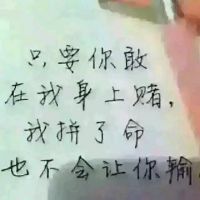 只要你敢
在我身上赌,
我拼了命
也不会让你输